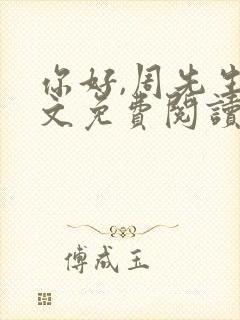 你好,周先生
文免費閱讀
傅成玉